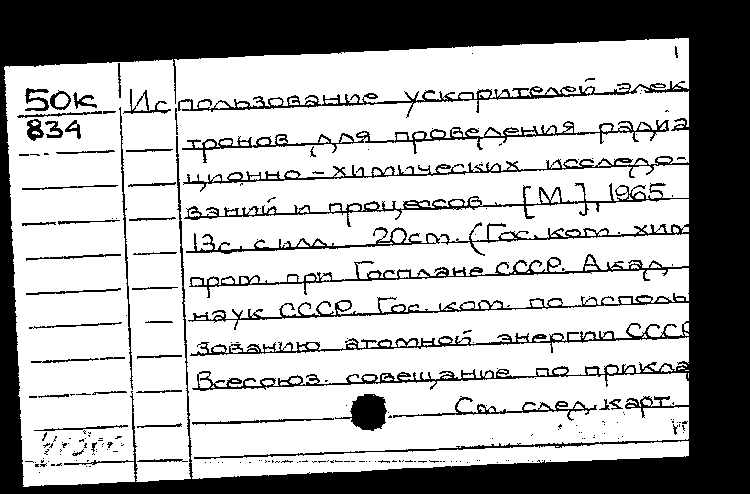 1
50к Использование ускорителей элек
834 тронов для проведения радиа
ционно-химических исследо-
ваний и процессов. [М.], 1965.
13с. с илл. 20см. (Гос. ком. хим
пром. при Госплане СССР. Акад.
наук СССР. Гос. ком. по исполь
зованию атомной энергии СССР
Всесоюз. совещание по прикла
См. след. карт.